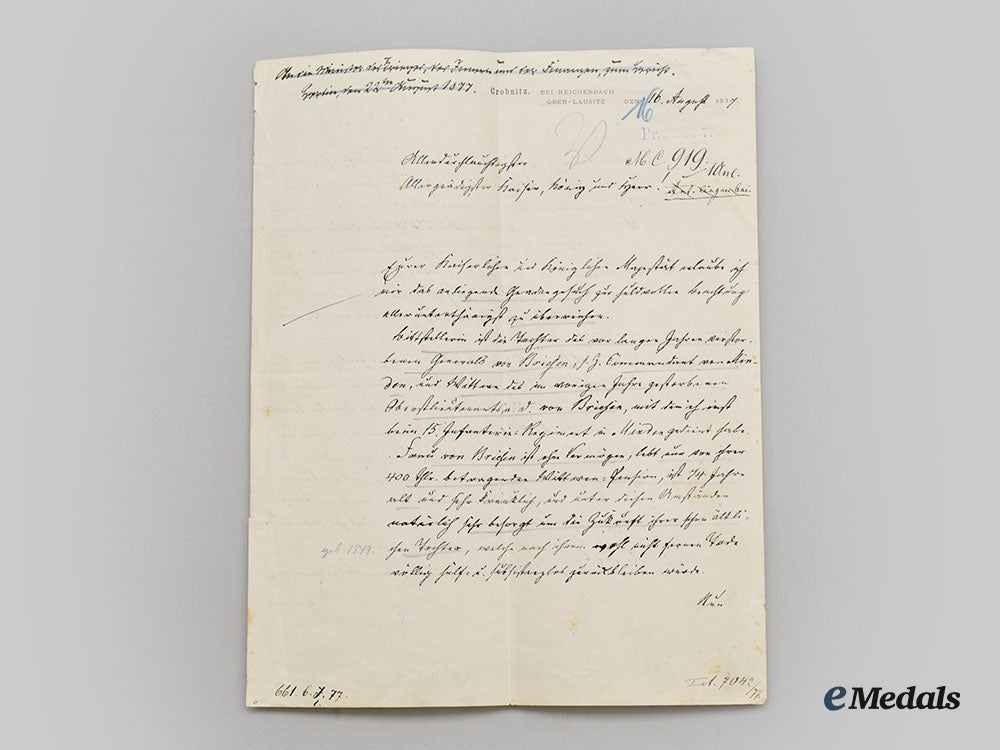 An die Minister des Krieges, des Innern und der Finanzen, zum Bericht.
Berlin, den 22ten August 1877.
Crobnitz. BEI REICHENBACH
OBER-LAUSITZ DEN 16. August 1877
16
Pr. 77.
M. C. 919.
1 Anl.
Allerdurchlauchtigster
Allergnädigster Kaiser, König und Herr.
Eurer Kaiserlichen und Königlichen Majestät erlaube ich
mir das anliegende Gnadengesuch zur huldvollen Beachtung
allerunterthänigst zu überreichen.
Bittstellerin ist die Tochter des vor langen Jahren verstor-
benen Generals von Briesen, s. Z. Commandant von Min-
den, und Wittwe des im vorigen Jahre gestorbenen
Oberstlieutenants a. D. von Briesen, mit dem ich einst
beim 15. Infanterie-Regiment in Minden gedient habe.
Frau von Briesen ist ohne Vermögen, lebt nur von ihrer
400 Thlr. betragenden Wittwen-Pension, ist 74 Jahre
alt und sehr kränklich, und unter diesen Umständen
natürlich sehr besorgt um die Zukunft ihrer schon ältli-
geb 1849.
chen Tochter, welche nach ihrem wohl nicht fernen Tode
völlig hülf- u. subsistenzlos zurückbleiben würde.
Nun
661. 6. 7. 77.
7042/77.
eMedals